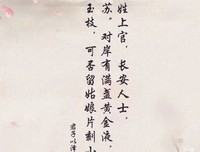 姓上官，长安人士，
苏。对岸有满盏黄金液，
玉枝，可否留姑娘片刻小
君子以泽